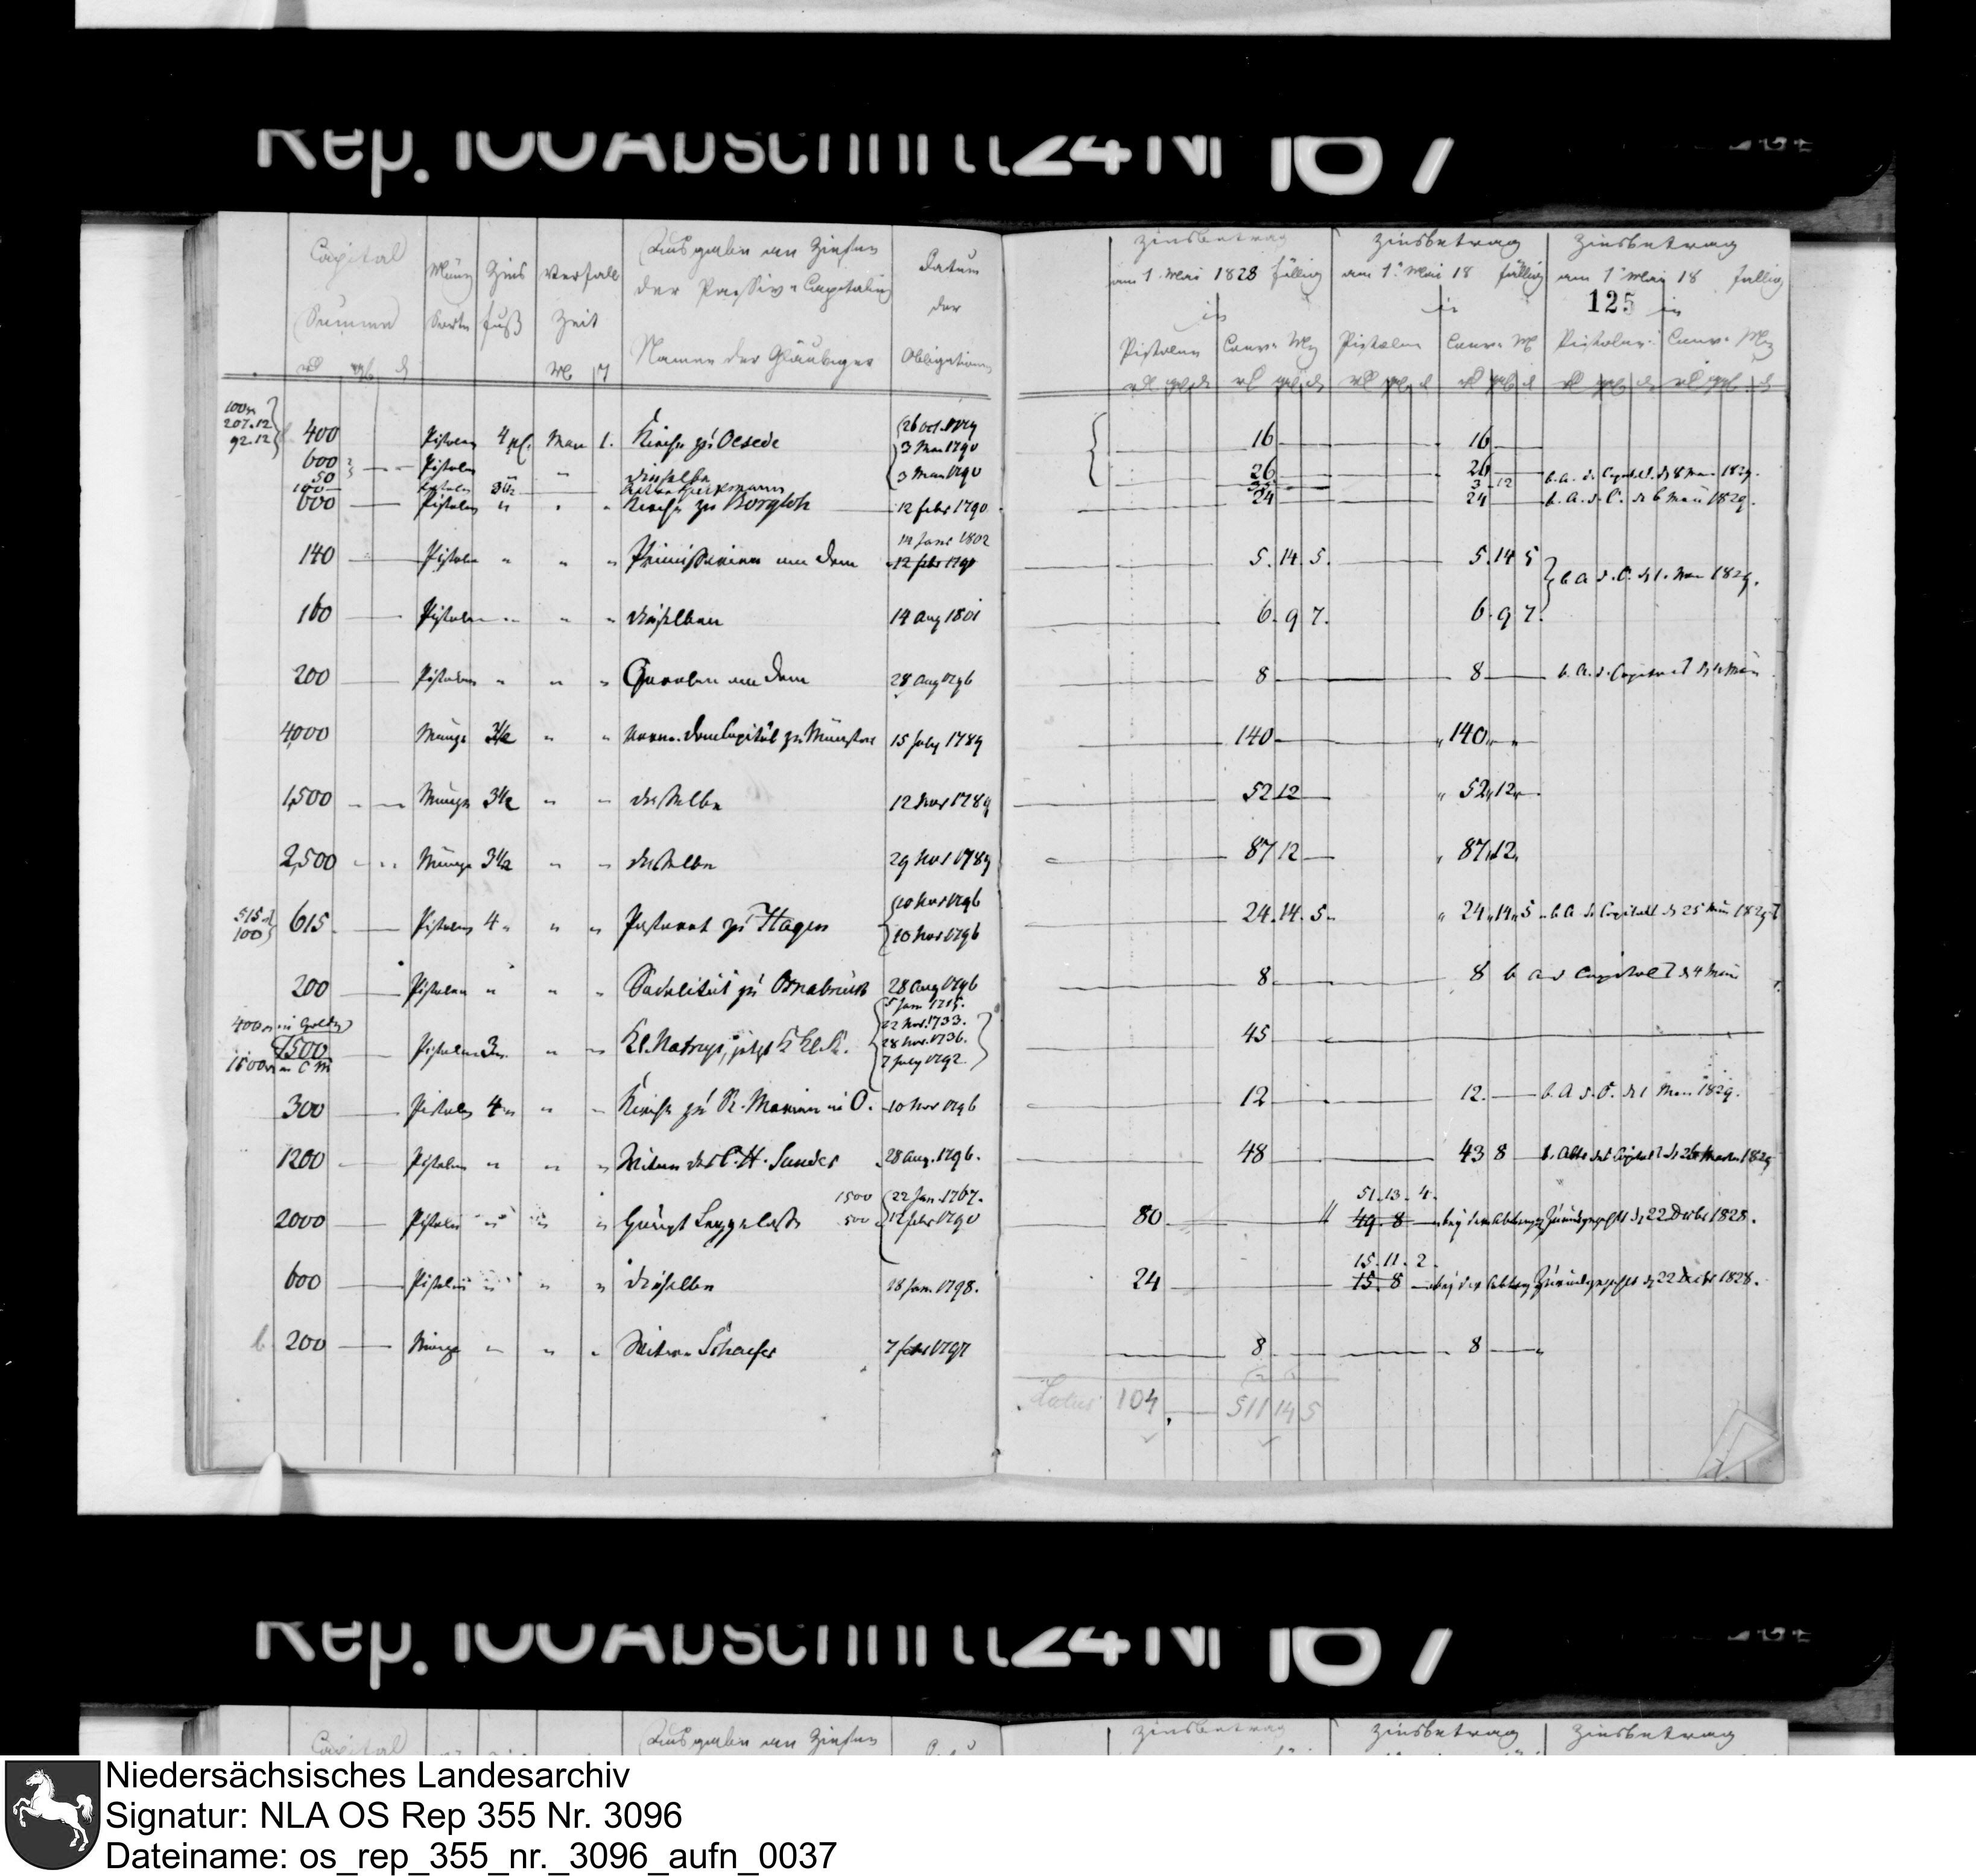 Rep. 100 Abschnitt 24 Nr 167
Capital
Summen
Münz Sorte
Zins fuß
Verfall Zeit
Ausgaben an Zinsen
der Passiv-Capitalien
Namen der Gläubiger
Datum
der
Obligationen
Zinsbetrag
am 1 Mai 1828 fällig
in
Pistolen Conv. Mz
Zinsbetrag
am 1. Mai 18 fällig
in
Pistolen Conv. M
Zinsbetrag
am 1 Mai 18 fällig
125 in
Pistolen Conv. Mz
100
207.12
92.12
400 Pistolen 4 pC. Mai 1. Kirche zu Oesede 26 Oct. 3 Mai 1790 16 16
600 Pistolen dieselbe 3 Mai 1790 26 26 b. A. d. Capitals d. 8 Mai 1829.
50
100 Pistolen 3 12
600 Pistolen " " " Kirche zu Borgloh 12 febr 1790 24 24 b. A. d. C. d. 6 Mai 1829.
140 Pistolen " " " Primissariem an dem 1802 12 febr 1790 5. 14. 5. 5. 14 5
b A d. C. d 1. Mai 1829.
160 Pistolen " " " dieselben 14 Aug 1801 6. 9 7. 6. 9 7.
200 Pistolen " " " an dem 28 Aug 1796 8 8 b. A. d. Capitals d 4 Mai
4000 Münze 3½ " " DomCapitul zu Münster 15 July 1789 140 140
1,500 Münze 3½ " " dasselbe 12 Nov 1789 52 12 52 12
2,500 Münze 3½ " " dasselbe 29 Nov 1789 87 12 87 12
515
100
615 Pistolen 4 " " " Pastorat zu Hagen 10 Nov 1796 10 Nov 1796 24. 14. 5 24 14 5 b A d. Capitals d 25 Mai 1829
200 Pistolen " " " Sodalität zu Osnabrück 28 Aug 1796 8 8 b a d Capital d 4 Mai
400 in Golde
1500
1500 in C M
Pistolen 3 " " Kl. Natrup, jetzt 5 Jan. 1715. 22 Nov. 1733. 28 Nov. 1736. 7 July 1792. 45
300 Pistolen 4 " " Kirche zu St. Marien in O. 10 Nov 1796 12 12. b. A d. C. d 1 Mai 1829.
1200 Pistolen " " " Witwe des C. H. Sander 28 Aug. 1796. 48 43 8
2000 Pistolen " " " Leggekasse 1500 500 22 Jan. 1767. 12 febr 1790 80 51. 13. 4. 49. 8 bey dem Abtrag d 22 Decbr 1828.
600 Pistolen " " " dieselbe 18 Jan. 1798. 24 15. 11. 2. 15. 8 bey der Abtrag d 22 Decbr 1828.
b 200 Münze " " " Witwe Schaefer 7 febr 1797 8 8
Latus 104 511 14 5
Rep. 100 Abschnitt 24 Nr 167
Capital
Ausgaben an Zinsen
Zinsbetrag Zinsbetrag Zinsbetrag
Niedersächsisches Landesarchiv
Signatur: NLA OS Rep 355 Nr. 3096
Dateiname: os_rep_355_nr._3096_aufn_0037